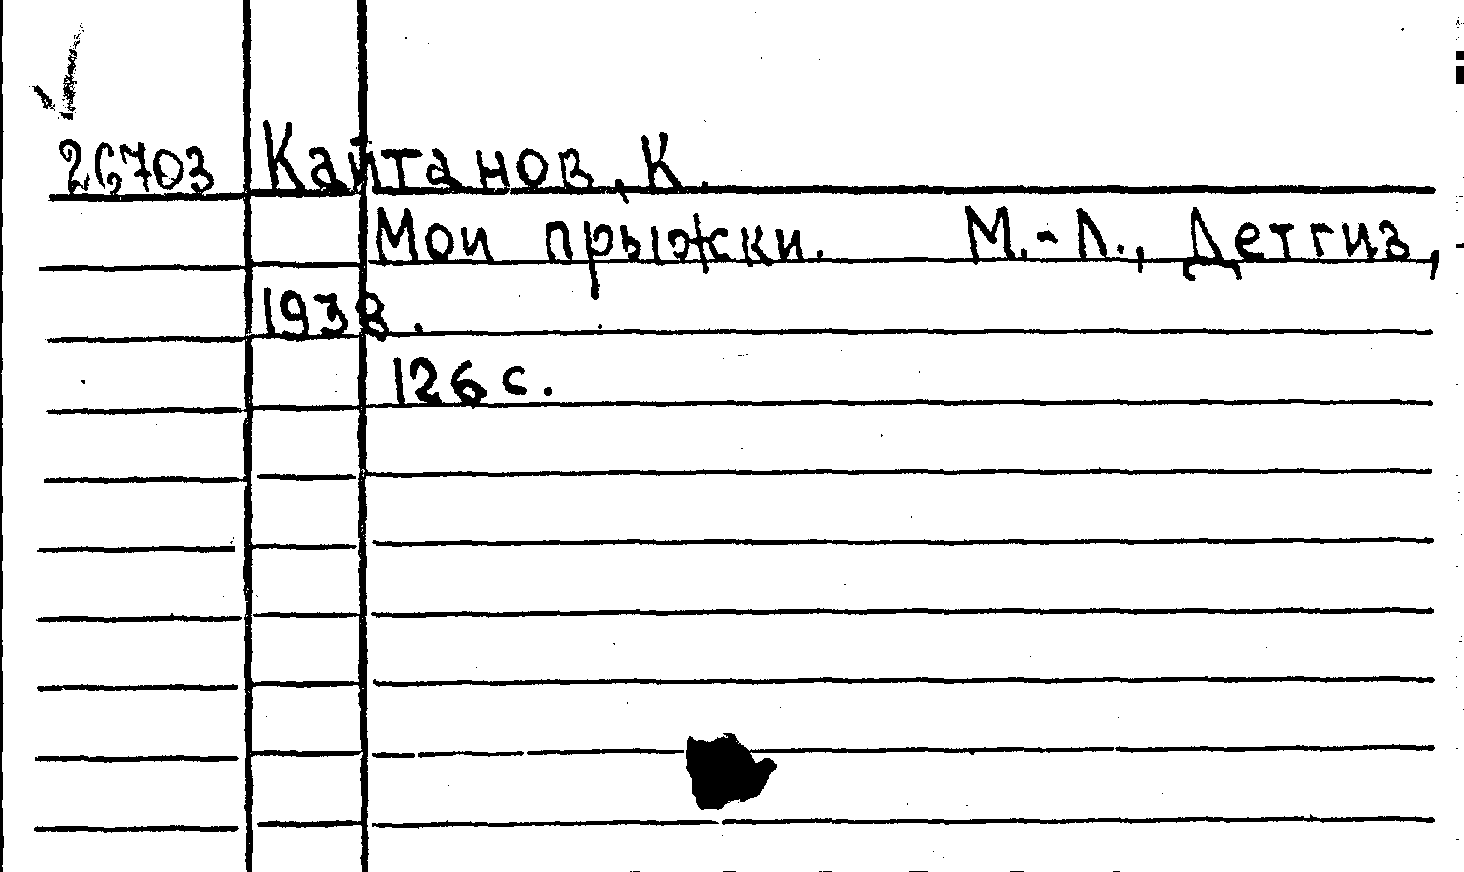 26703 Кайтанов, К.
Мои прыжки. М.-Л., Детгиз,
1938.
126 с.